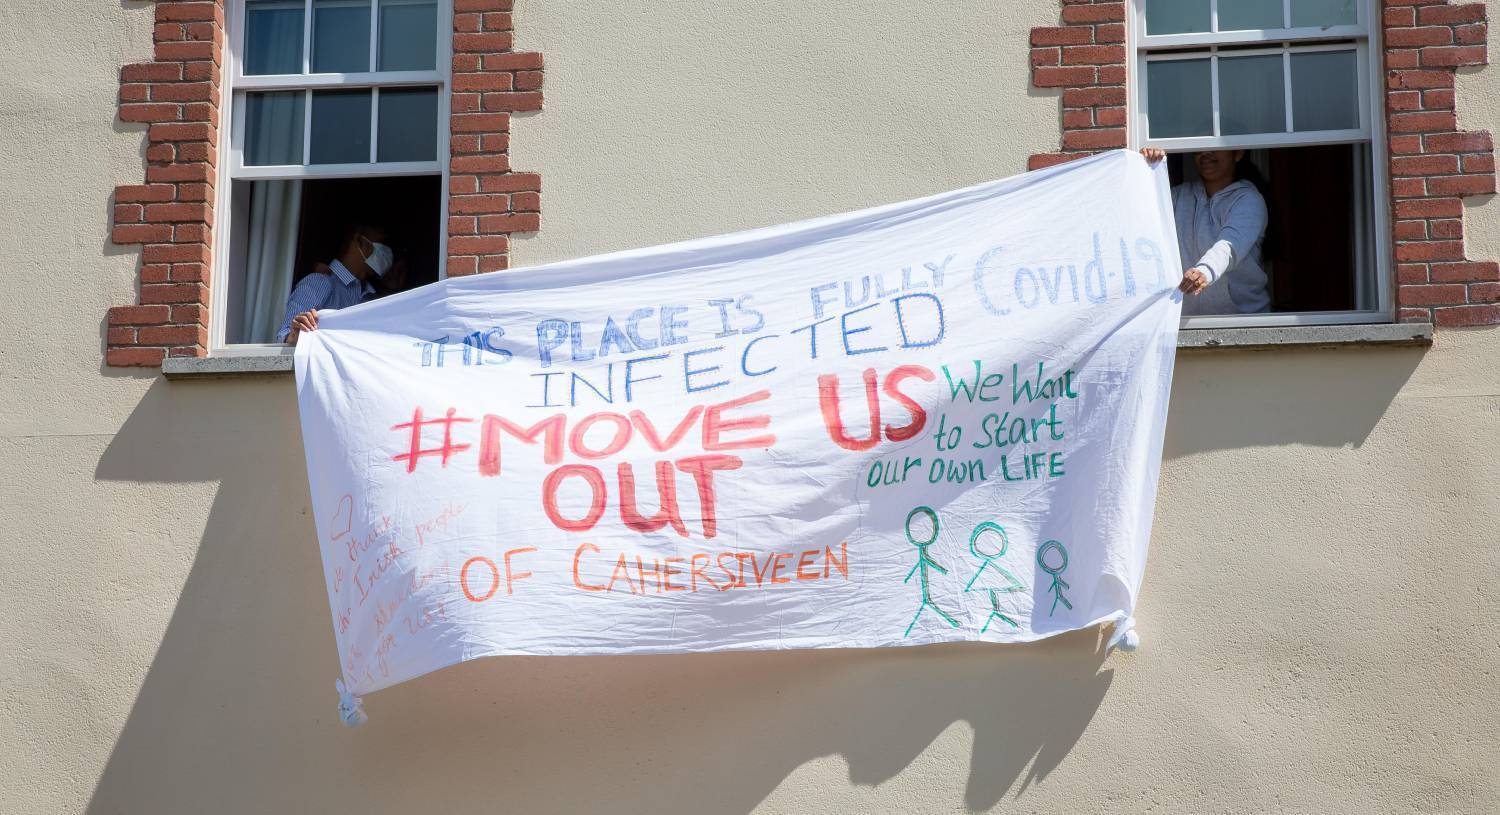 THIS PLACE IS FULLY Covid-19
INFECTED
#MOVE US
OUT
OF CAHERSIVEEN
We Want
to Start
our own LIFE
thank
Irish people
for US!